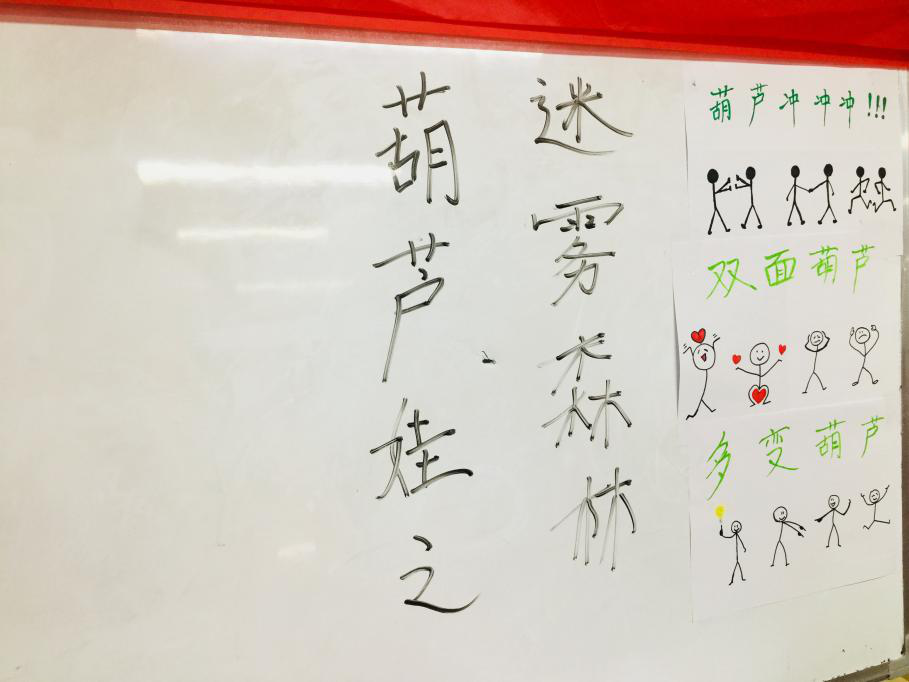 葫芦娃之
迷雾森林
葫芦冲冲冲!!!
双面葫芦
多变葫芦